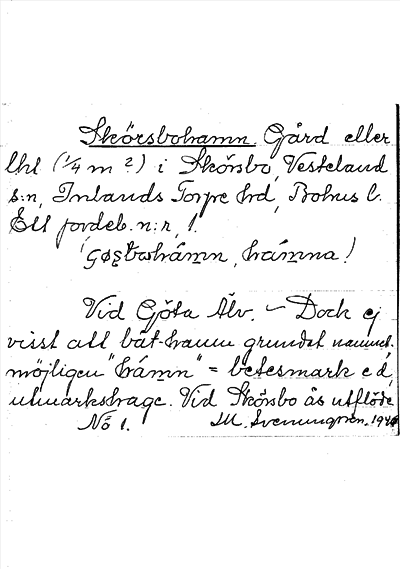 Skörsbohamn. Gård eller
lht (1/4 m ?) i Skörsbo, Vesterland
s:n, Inlands Torpe hd, Bohus l.
Ett jordeb. n:r, 1.
hámna)
Vid Göta Älv. – Dock ej
visst att båt-hamn grundat namnet.
möjligen "hámn" = betesmark e d,
utmarkshage. Vid Skörsbo ås utflöde
No 1. M. Svenungsson. 1946